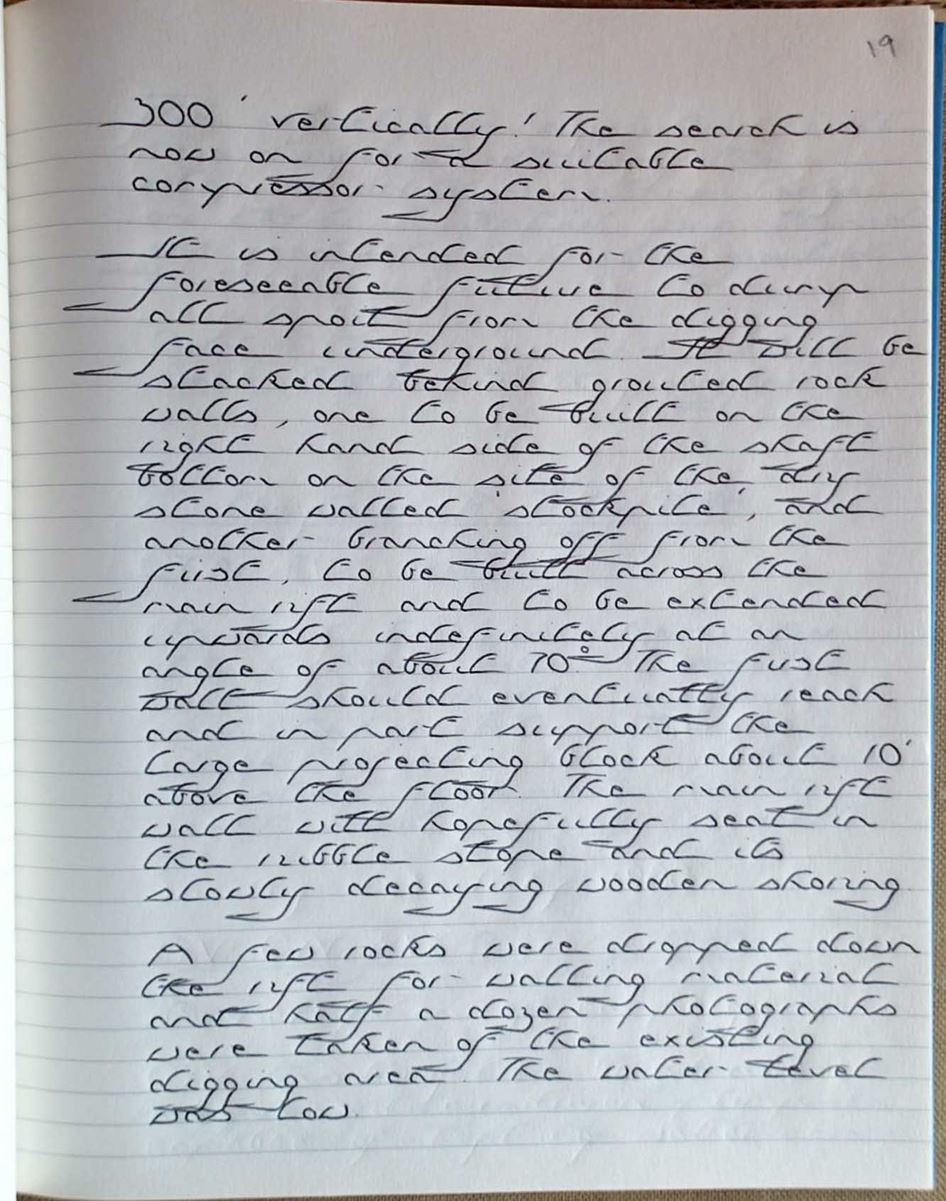 19
300' vertically! The search is
now on for a suitable
compressor system.
It is intended for the
foreseeable future to dump
all spoil from the digging
face underground. It will be
stacked behind grouted rock
walls, one to be built on the
right hand side of the shaft
bottom on the site of the 'dry
stone walled stockpile', and
another branching off from the
first, to be built across the
main rift and to be extended
upwards indefinitely at an
angle of about 70°. The first
wall should eventually reach
and in part support the
large projecting block about 10'
above the floor. The main rift
wall will hopefully seal in
the rubble slope and its
slowly decaying wooden shoring.
A few rocks were dropped down
the rift for walling material
and half a dozen photographs
were taken of the existing
digging area. The water level
was low.